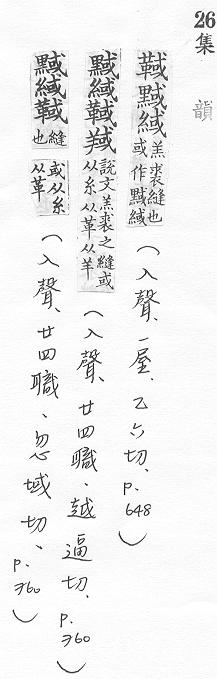 26 集 韻
䵧緎羔裘縫也或作䵧緎（入聲、一屋、乙六切、p.648）
䵧緎說文羔裘之縫或从糸从革从羊（入聲、廿四職、越逼切、p.760）
䵧緎縫也或从糸从革（入聲、廿四職、忽域切、p.760）